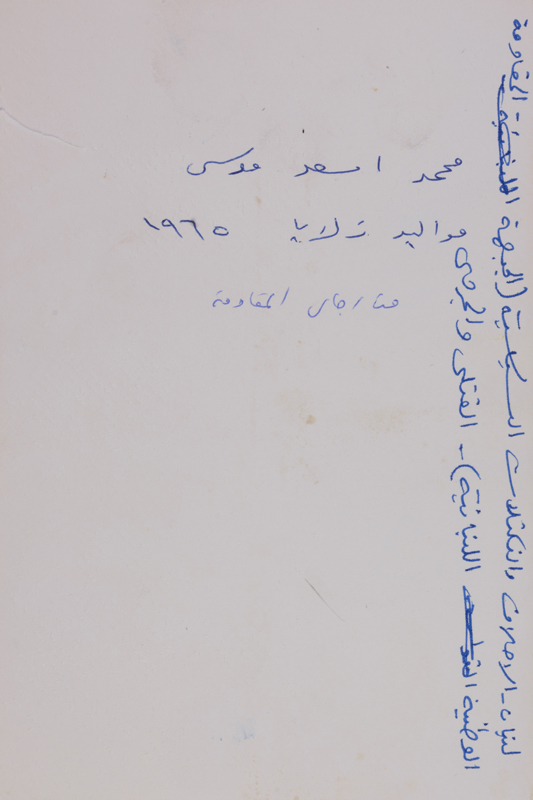 محمد اسعد موسى
مواليد زلايا ١٩٦٥
من رجال المقاومة
لبنان - الاحزاب والتكتلات السياسية (الجبهة - المقاومة
الوطنية اللبنانية) - القتلى والجرحى